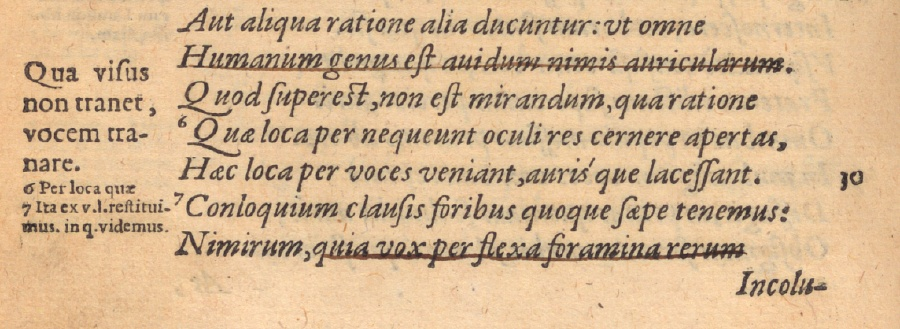 Aut aliqua ratione alia ducuntur: vt omne
Humanium genus est auidum nimis auricularum.
Quod superest, non est mirandum, qua ratione
⁶Quæ loca per nequeunt oculi res cernere apertas,
Hæc loca per voces veniant, aurís que lacessant.
⁷Conloquium clausis foribus quoque sæpe tenemus:
Nimirum, quia vox per flexa foramina rerum
Incolu-
Qua visus
non tranet,
vocem tra-
nare.
6 Per loca quæ
7 Ita ex v.l. restitui-
mus. in q. videmus.
30